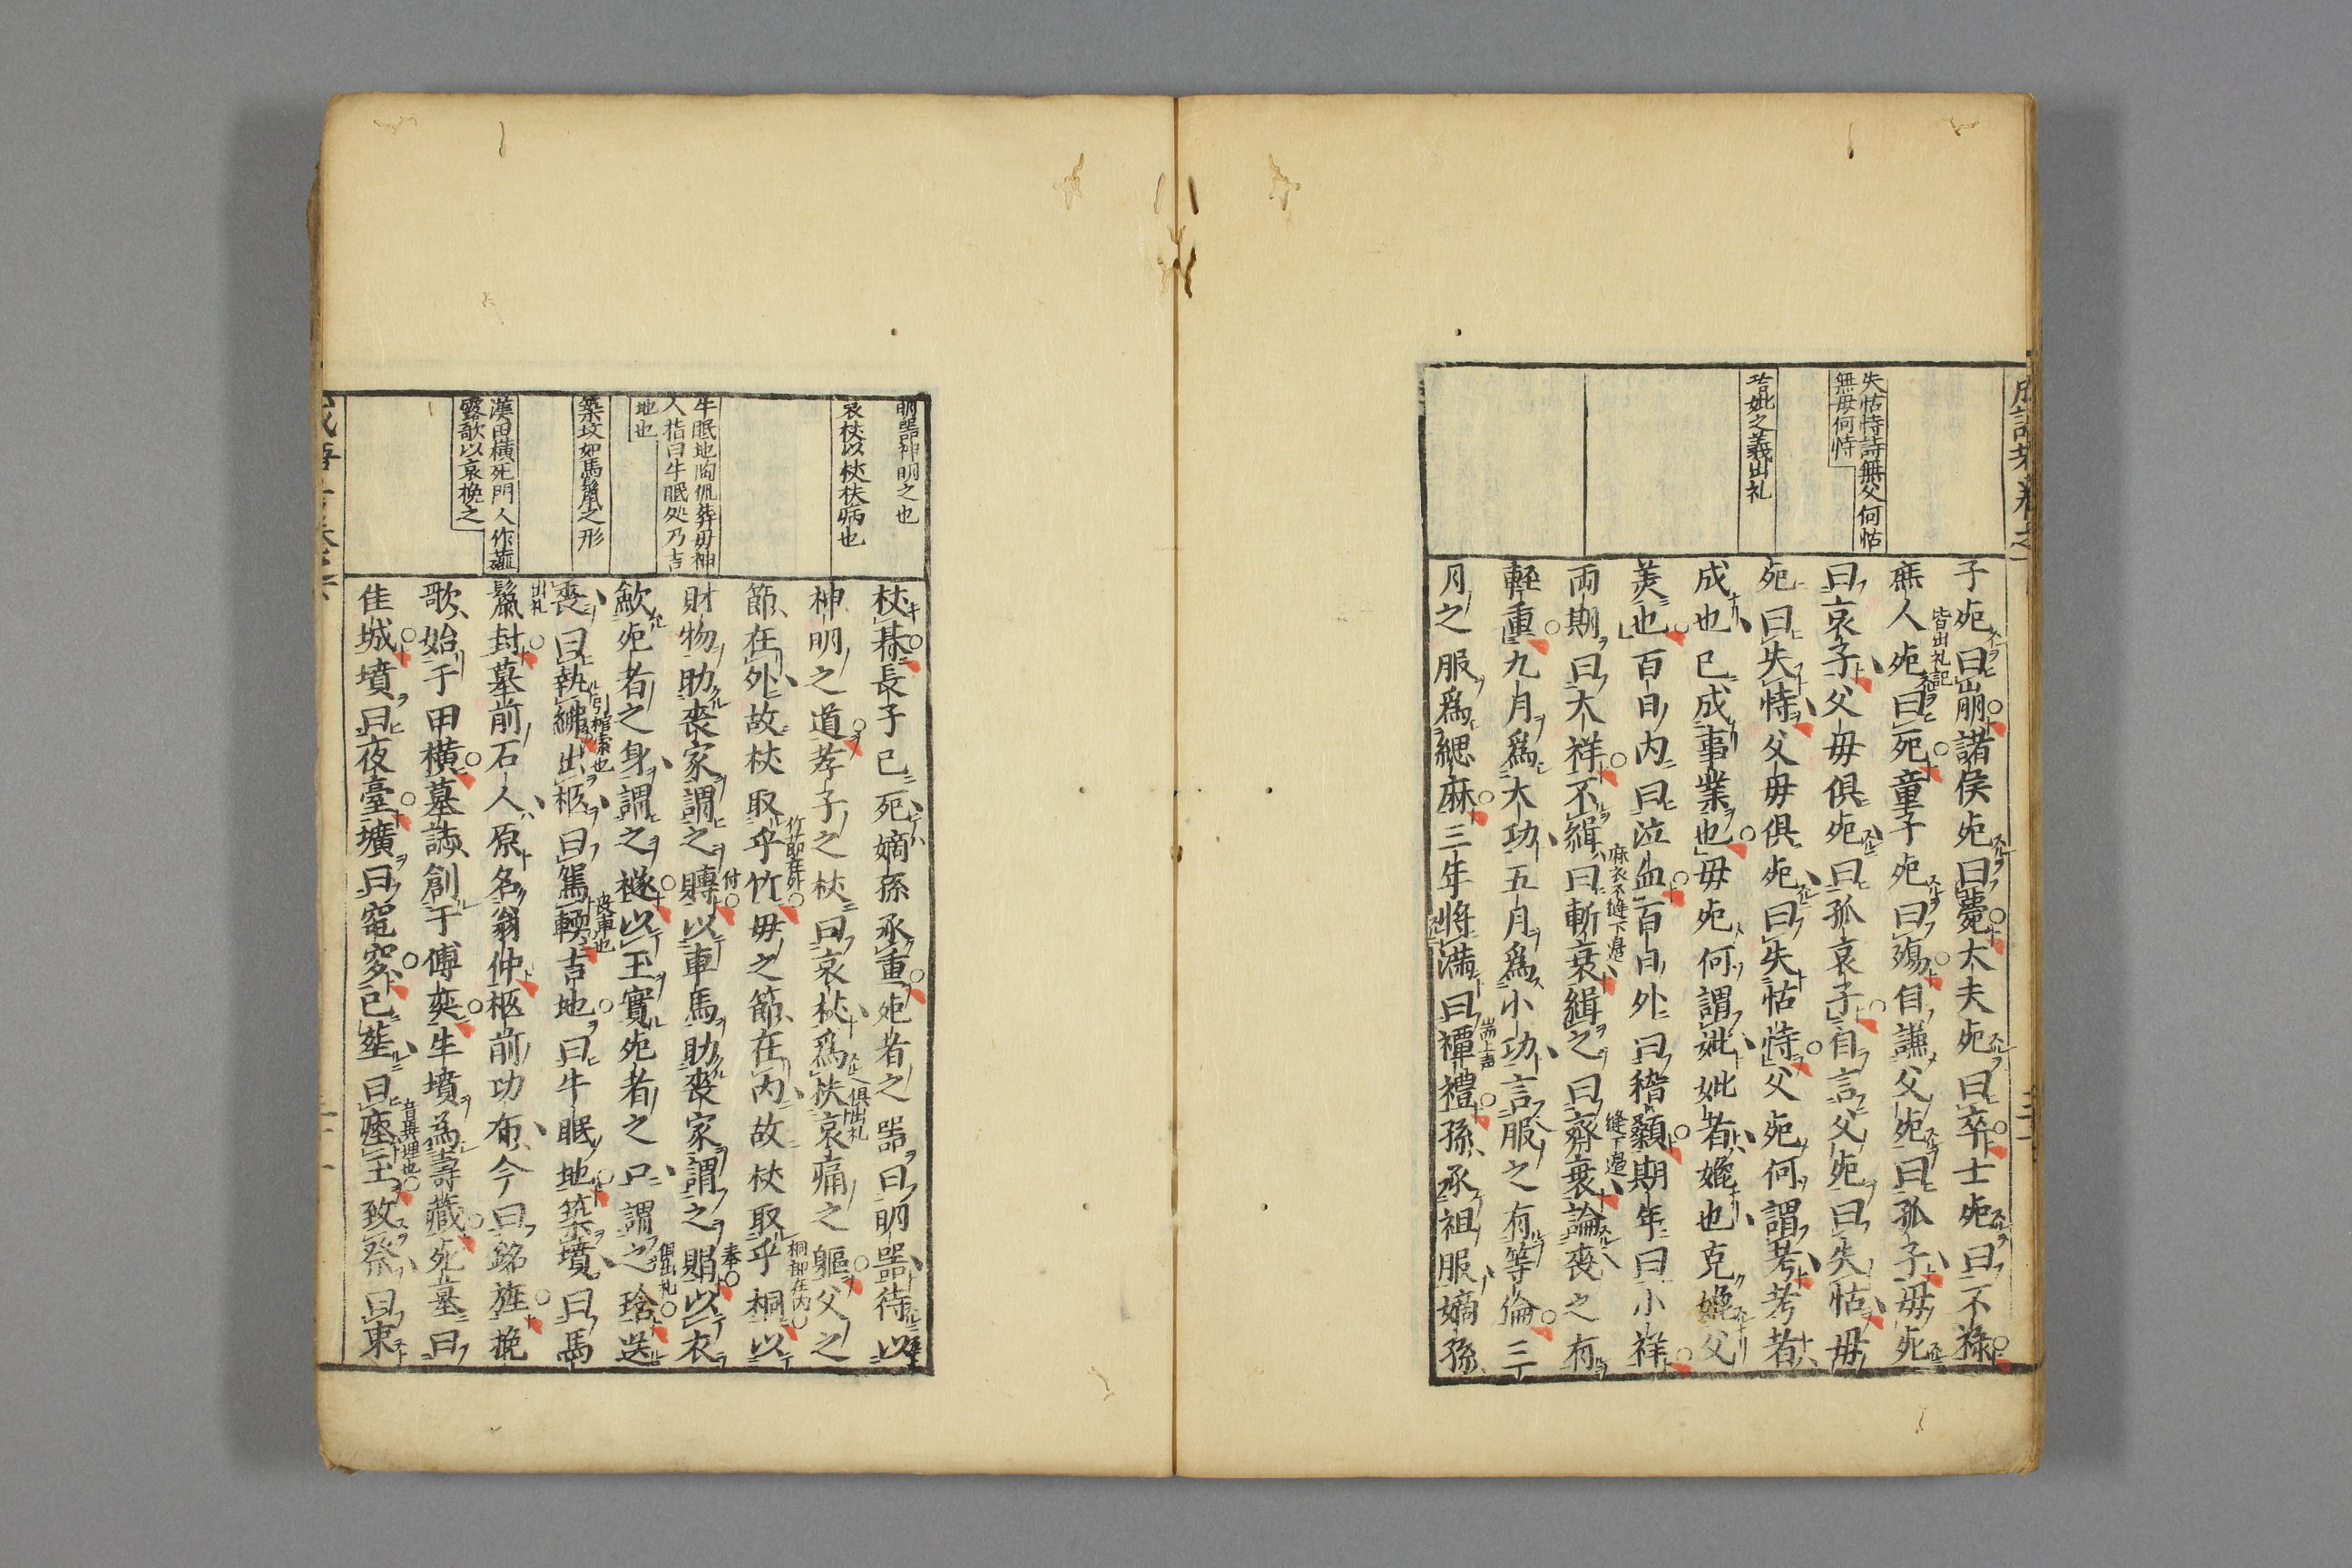 失怙恃詩無父何怙
無母何恃
考妣之義出礼
子死曰崩諸侯死曰薨大夫死曰卒士死曰不祿
皆出礼記
庶人死曰死童子死曰殤自謙父死曰孤子母死
曰哀子父母俱死曰孤哀子自言父死曰失怙母
死曰失恃父母俱死曰失怙恃父死何謂考考者
成也已成事業也母死何謂妣妣者媲也克媲父
美也百日內曰泣血百日外曰稽顙期年曰小祥
兩期曰大祥不緝曰斬衰緝之曰齊衰論喪之有
麻衣不縫下邊
縫下邊
輕重九月爲大功五月爲小功言服之有等倫三
月之服爲緦麻三年將滿曰禫禮孫承祖服嫡孫
明器神明之也
哀杖以杖扶病也
牛眠地陶侃葬母神
人指曰牛眠処乃吉
地也
築坟如馬鬣之形
漢田橫死門人作薤
露歌以哀挽之
杖朞長子已死嫡孫承重死者之器曰明器待以
神明之道孝子之杖曰哀杖爲扶哀痛之軀父之
俱出礼
節在外故杖取乎竹母之節在內故杖取乎桐以
竹節在外
桐節在內
財物助喪家謂之賻以車馬助喪家謂之賵以衣
付
奉
斂死者之身謂之襚以玉實死者之口謂之琀送
俱出礼
喪曰執紼出柩曰駕輀吉地曰牛眠地築墳曰馬
引棺索也
喪車也
鬣封墓前石人原名翁仲柩前功布今曰銘旌挽
出礼
歌始于田橫墓誌創于傅奕生墳爲壽藏死墓曰
佳城墳曰夜臺壙曰窀穸已塟曰瘞玉致祭曰束